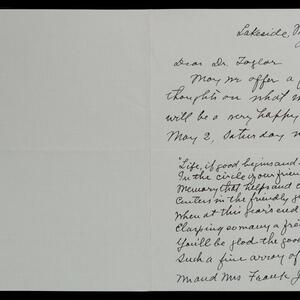 Lakeside,
Dear Dr. Taylor
May we offer a
thoughts on what
will be a very happy
May 2, Saturday
"Life, if good begins and
In the circle of your frien
Memory that helps and
Centers in the friendly
When at this year's end
Clasping so many a
You'll be glad the good
Such a fine array of
Mr and Mrs Frank